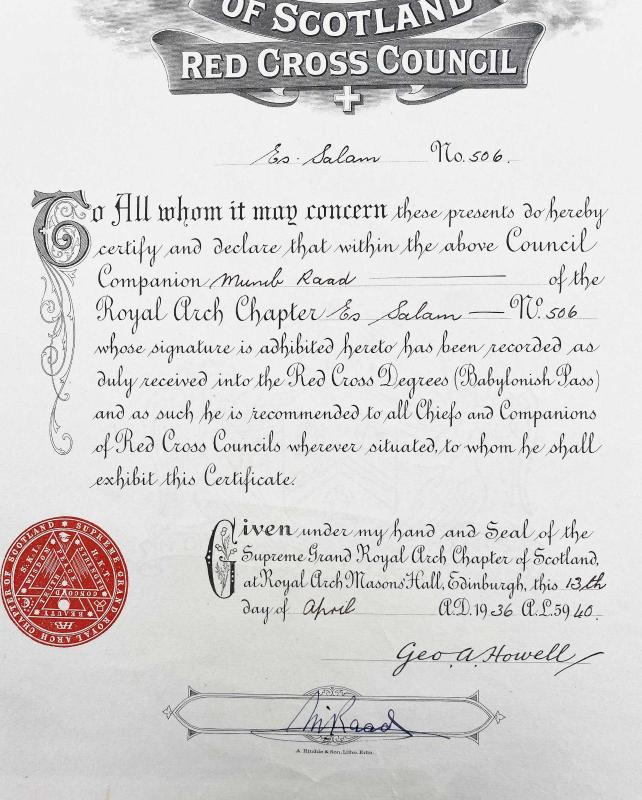 OF SCOTLAND
RED CROSS COUNCIL
Es. Salam No. 506.
To All whom it may concern these presents do hereby
certify and declare that within the above Council
Companion Munib Raad of the
Royal Arch Chapter Es Salam — No. 506
whose signature is adhibited hereto has been recorded as
duly received into the Red Cross Degrees (Babylonish Pass)
and as such he is recommended to all Chiefs and Companions
of Red Cross Councils wherever situated, to whom he shall
exhibit this Certificate.
SUPREME GRAND ROYAL ARCH CHAPTER OF SCOTLAND
S.K.I.
H.K.T.
WISDOM
STRENGTH
PEACE
TRUTH
CONCORD
BEAUTY
Given under my hand and Seal of the
Supreme Grand Royal Arch Chapter of Scotland,
at Royal Arch Masons' Hall, Edinburgh, this 13th
day of April A.D. 1936 A.L. 5940.
Geo. A. Howell
M Raad
A. Ritchie & Son, Litho. Edin.